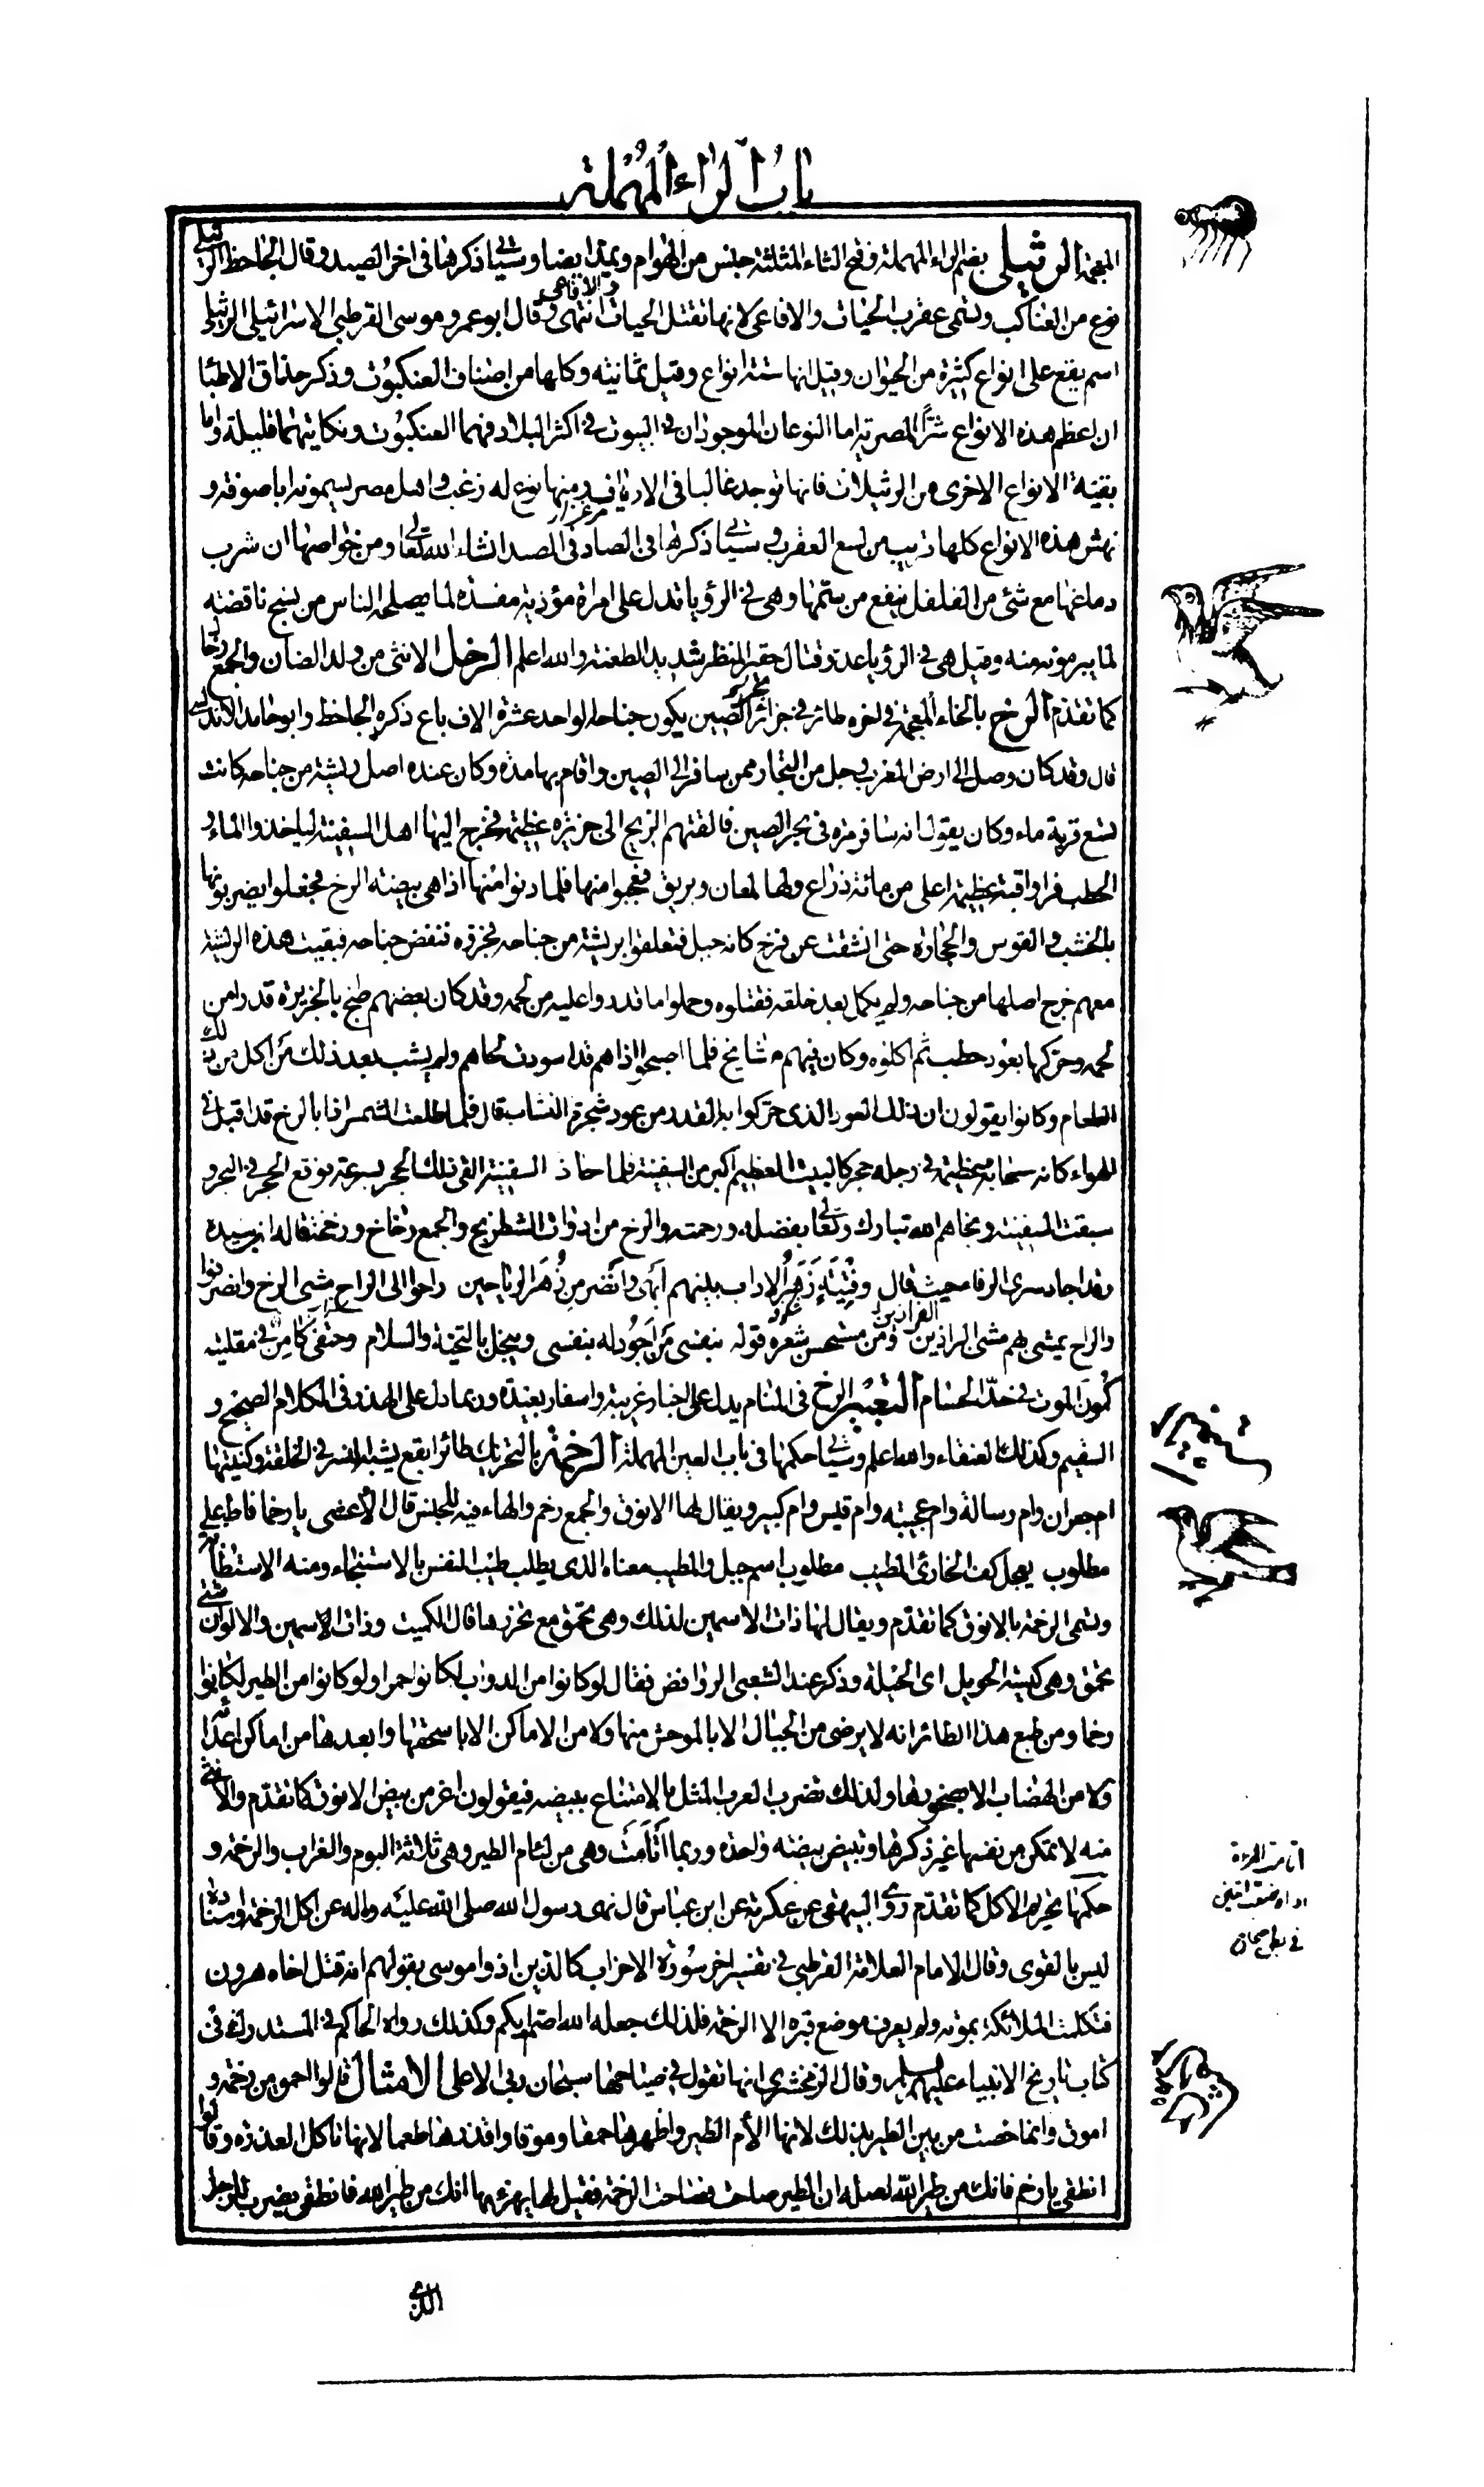 باب الراء المهملة
المعجمة الرثيلى بضم الراء المهملة وفتح الثاء المثلثة جنس من الهوام ويمد ايضا وسياتى ذكرها فى اخر الصيد وقال الجاحظ الرثيلى
نوع من العناكب وتسمى عقرب الحيات والافاعى لانها تقتل الحيات والافاعى انتهى وقال ابو عمرو موسى القرطبى الاسرائيلى الرثيلى
اسم يقع على انواع كثيرة من الحيوان وقيل انها ستة انواع وقيل ثمانية وكلها من اصناف العنكبوت وذكر حذاق الاطبا
ان اعظم هذه الانواع شرًّا المصرية اما النوعان الموجودان فى البيوت فى اكثر البلاد فهما العنكبوت ونكايتهما قليلة واما
بقية الانواع الاخرى من الرثيلات فانها توجد غالبا فى الارياف ومنها نوع له زغب واهل مصر يسمونه ابا صوفة و
نهش هذه الانواع كلها قريب من لسع العقرب وسياتى ذكرها فى الصاد فى الصيد انشاء الله تعالى ومن خواصها ان شرب
دماغها مع شئ من الفلفل ينفع من سمها وهى فى الرؤيا تدل على امراة مؤذية مفسدة لما يصلحه الناس من نسج ناقضته
لما يبرمونه منه وقيل هى فى الرؤيا عدو قتال حقير المنظر شديد الطعنة والله اعلم الرخل الانثى من ولد الضان والجمع رخال
كما تقدم الرخ بالخاء المعجمة فى اخره طائر فى جزائر بحر الصين يكون جناحه الواحد عشرة الاف باع ذكره الجاحظ وابو حامد الاندلسى
قال وقد كان وصل الى ارض المغرب رجل من التجار ممن سافر الى الصين واقام بها مدة وكان عنده اصل ريشة من جناحه كانت
تسع قربة ماء وكان يقول انه سافر مرة فى بحر الصين فالقتهم الريح الى جزيرة عظيمة فخرج اليها اهل السفينة لياخذوا الماء و
الحطب فراوا قبة عظيمة اعلى من مائة ذراع ولها لمعان وبريق فعجبوا منها فلما دنوا منها اذا هى بيضة الرخ فجعلوا يضربونها
بالخشب والفوس والحجارة حتى انشقت عن فرخ كانه جبل فتعلقوا بريشة من جناحه فجروه فنفض جناحه فبقيت هذه الريشة
معهم خرج اصلها من جناحه ولم يكمل بعد خلقه فقتلوه وحملوا ما قدروا عليه من لحمه وقد كان بعضهم طبخ بالجزيرة قدرا من
لحمه وحركها بعود حطب ثم اكلوه وكان فيهم مشايخ فلما اصبحوا اذا هم قد اسودت لحاهم ولم يشب بعد ذلك من اكل من ذلك
الطعام وكانوا يقولون ان ذلك العود الذى حركوا به القدر من عود شجرة النشاب قال فلما طلعت الشمس اذا بالرخ قد اقبل فى
الهواء كانه سحابة عظيمة فى رجله حجر كالبيت العظيم اكبر من السفينة فلما حاذ السفينة القى ذلك الحجر بسرعة فوقع الحجر فى البحر و
سبقت السفينة ونجاهم الله تبارك وتعالى بفضله ورحمته والرخ من ادوات الشطرنج والجمع رخاخ ورخخة قاله ابن سيده
وقد اجاد سرى الرفا حيث قال وفتية زهر الاداب بينهم ابهى وانضر من زهر الرياحين راحوا الى الراح مشى الرخ وانصرفوا
والراح يمشى بهم مشى البراذين الفرازين ومن مستحسن شعره قوله بنفسى من اجود له بنفسى ويبخل بالتحية والسلام وحتفى كامن فى مقلتيه
كمون الموت فى حد الحسام التعبير الرخ فى المنام يدل على اخبار غريبة واسفار بعيدة وربما دل على الهذر فى الكلام الصحيح و
السقيم وكذلك العنقاء والله اعلم وسياتى حكمها فى باب العين المهملة الرخمة بالتحريك طائر ابقع يشبه النسر فى الخلقة وكنيتها
ام جعران وام رسالة وام عجيبة وام قيس وام كبير ويقال لها الانوق والجمع رخم والهاء فيه للجنس قال الأعشى يا رخما قاظ على
مطلوب يعجل كف الخارئ المطيب مطلوب اسم جبل والمطيب معناه الذى يطلب طيب النفس بالاستنجاء ومنه الاستطابة
وتسمى الرخمة بالانوق كما تقدم ويقال لها ذات الاسمين لذلك وهى تحمق مع تحرزها قال الكميت وذات الاسمين والالوان شتى
تحمق وهى كيسة الحويل اى الحيلة وذكر عند الشعبى الروافض فقال لو كانوا من الدواب لكانوا حمرا ولو كانوا من الطير لكانوا
رخما ومن طبع هذا الطائر انه لا يرضى من الجبال الا بالموحش منها ولا من الاماكن الا باسحقها وابعدها من اماكن اعدائه
ولا من الهضاب الا بصخورها ولذلك تضرب العرب المثل بالامتناع ببيضه فيقولون اعز من بيض الانوق كما تقدم والانثى
منه لا تمكن من نفسها غير ذكرها وتبيض بيضة واحدة وربما اتأمت وهى من لئام الطير وهى ثلاثة البوم والغراب والرخمة و
حكمها تحريم الاكل كما تقدم روى البيهقى عن عكرمة عن ابن عباس قال نهى رسول الله صلى الله عليه واله عن اكل الرخمة واسناده
ليس بالقوى وقال الامام العلامة القرطبى فى تفسير اخر سورة الاحزاب كالذين اذوا موسى بقولهم انه قتل اخاه هرون
فتكلمت الملائكة بموته ولم يعرف موضع قبره الا الرخمة فلذلك جعله الله اصم ابكم وكذلك رواه الحاكم فى المستدرك فى
كتاب تاريخ الانبياء عليهم السلام وقال الزمخشرى انها تقول فى صياحها سبحان ربى الاعلى الامثال قالوا احمق من رخمة و
اموق وانما خصت من بين الطير بذلك لانها الأم الطير واظهرها حمقا وموقا واقذرها طعما لانها تاكل العذرة وقالوا
انطقى يا رخم فانك من طير الله اصله ان الطير صاحت فصاحت الرخمة فقيل لها يهزء بها انك من طير الله فانطقى يضرب للرجل
أتأمت المرءة
اذا وضعت اثنين
فى بطن صحاح
الذى